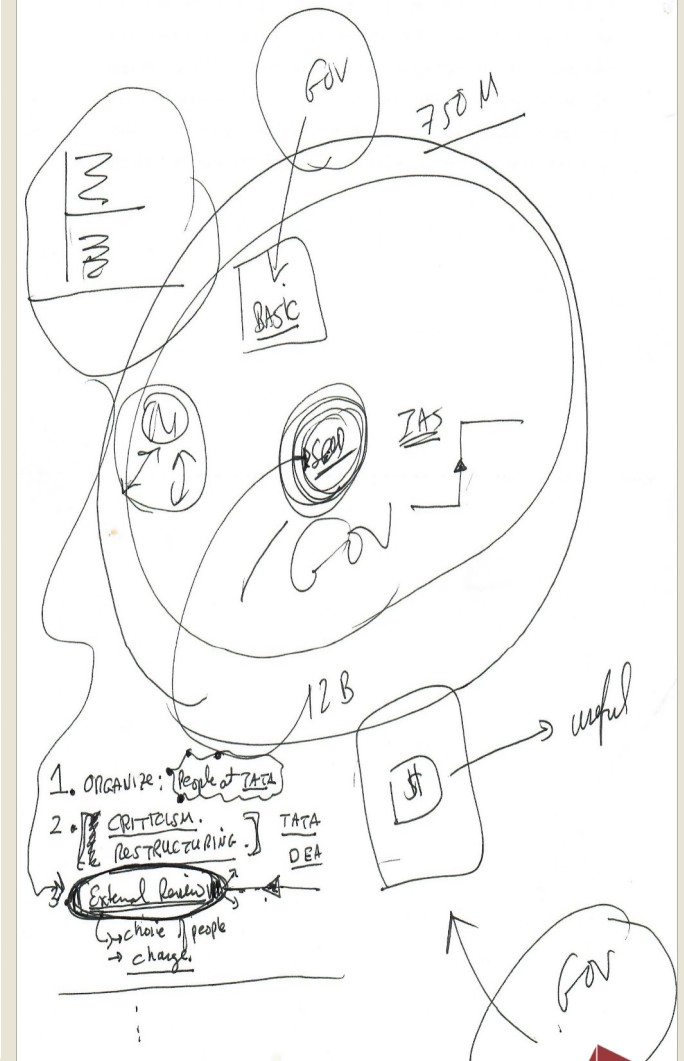 GOV
750 M
BASIC
GOV
12 B
useful
$
1. ORGANIZE: People at TATA
2. [CRITICISM. TATA
RESTRUCTURING.] DEA
3. External Review
↳ choice of people
→ change.
GOV